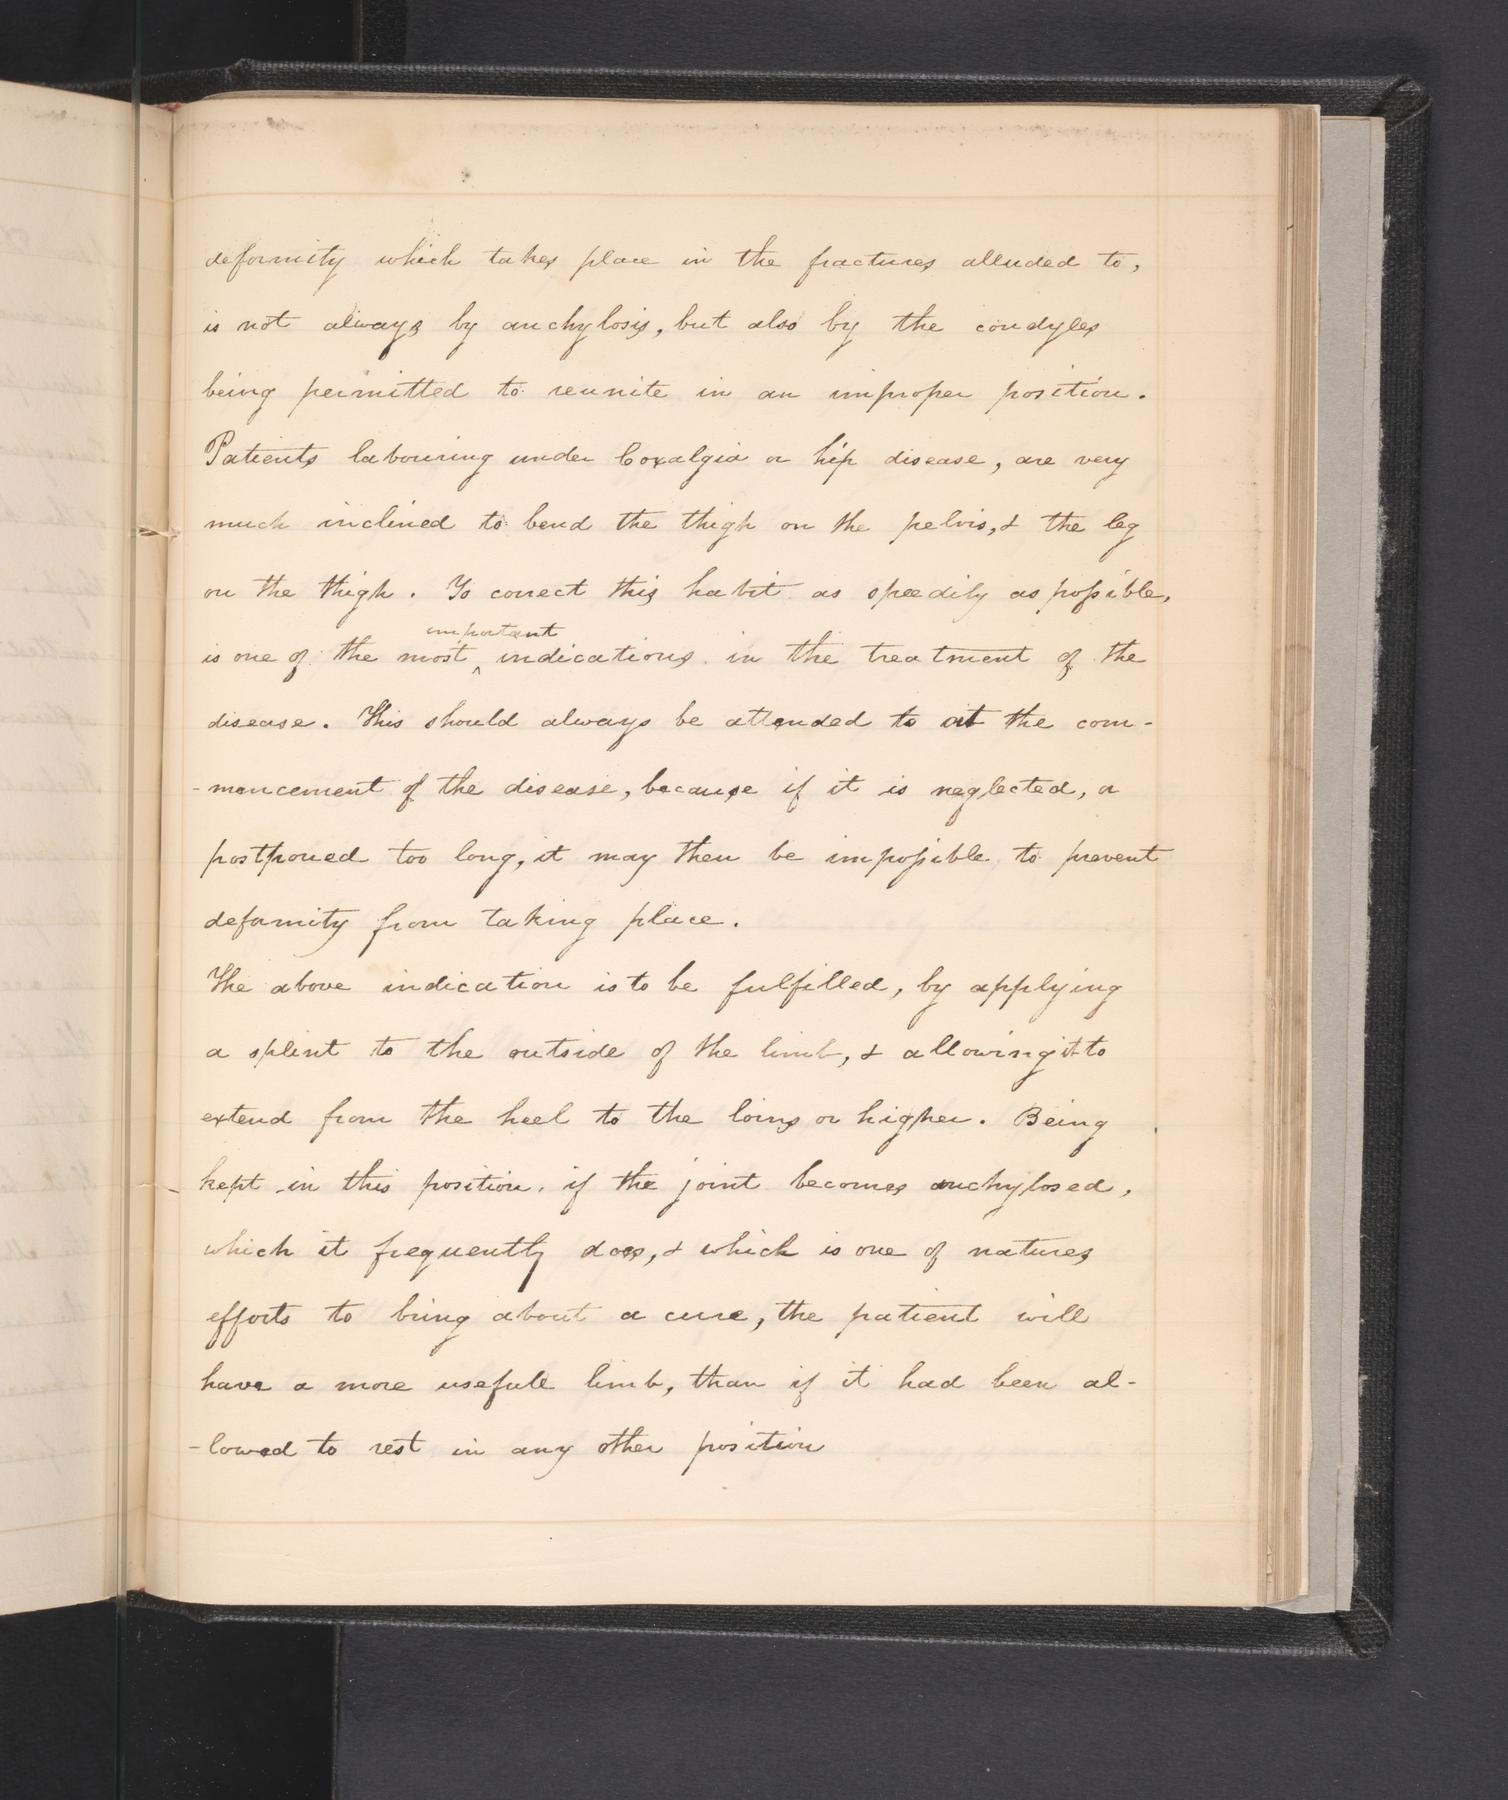 deformity which takes place in the fractures alluded to,
is not always by anchylosis, but also by the condyles
being permitted to reunite in an improper position.
Patients labouring under Coxalgia or hip disease, are very
much inclined to bend the thigh on the pelvis, & the leg
on the thigh. To correct this habit as speedily as possible,
important
is one of the most ^ indications in the treatment of the
disease. This should always be attended to at the com-
-mencement of the disease, because if it is neglected, or
postponed too long, it may then be impossible to prevent
deformity from taking place.
The above indication is to be fulfilled, by applying
a splint to the outside of the limb, & allowing it to
extend from the heel to the loins or higher. Being
kept in this position, if the joint becomes anchylosed,
which it frequently does, & which is one of natures
efforts to bring about a cure, the patient will
have a more usefull limb, than if it had been al-
-lowed to rest in any other position